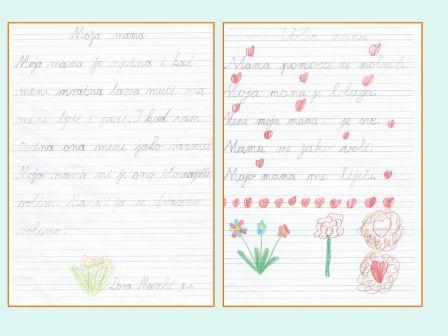 Moja mama
Moja mama je nježna i kad
meni mračna tama muči ona
mene tješi i pazi. I kad sam
tužna ona mene jako
Moja mama mi je ono što najviše
volim. Mama i ja se stvarno
volimo.
Volim mamu
Mama pomozi mi molim te
Moja mama je blaga.
Meni moja mama je sve.
Mama me jako voli.
Moja mama me liječi.